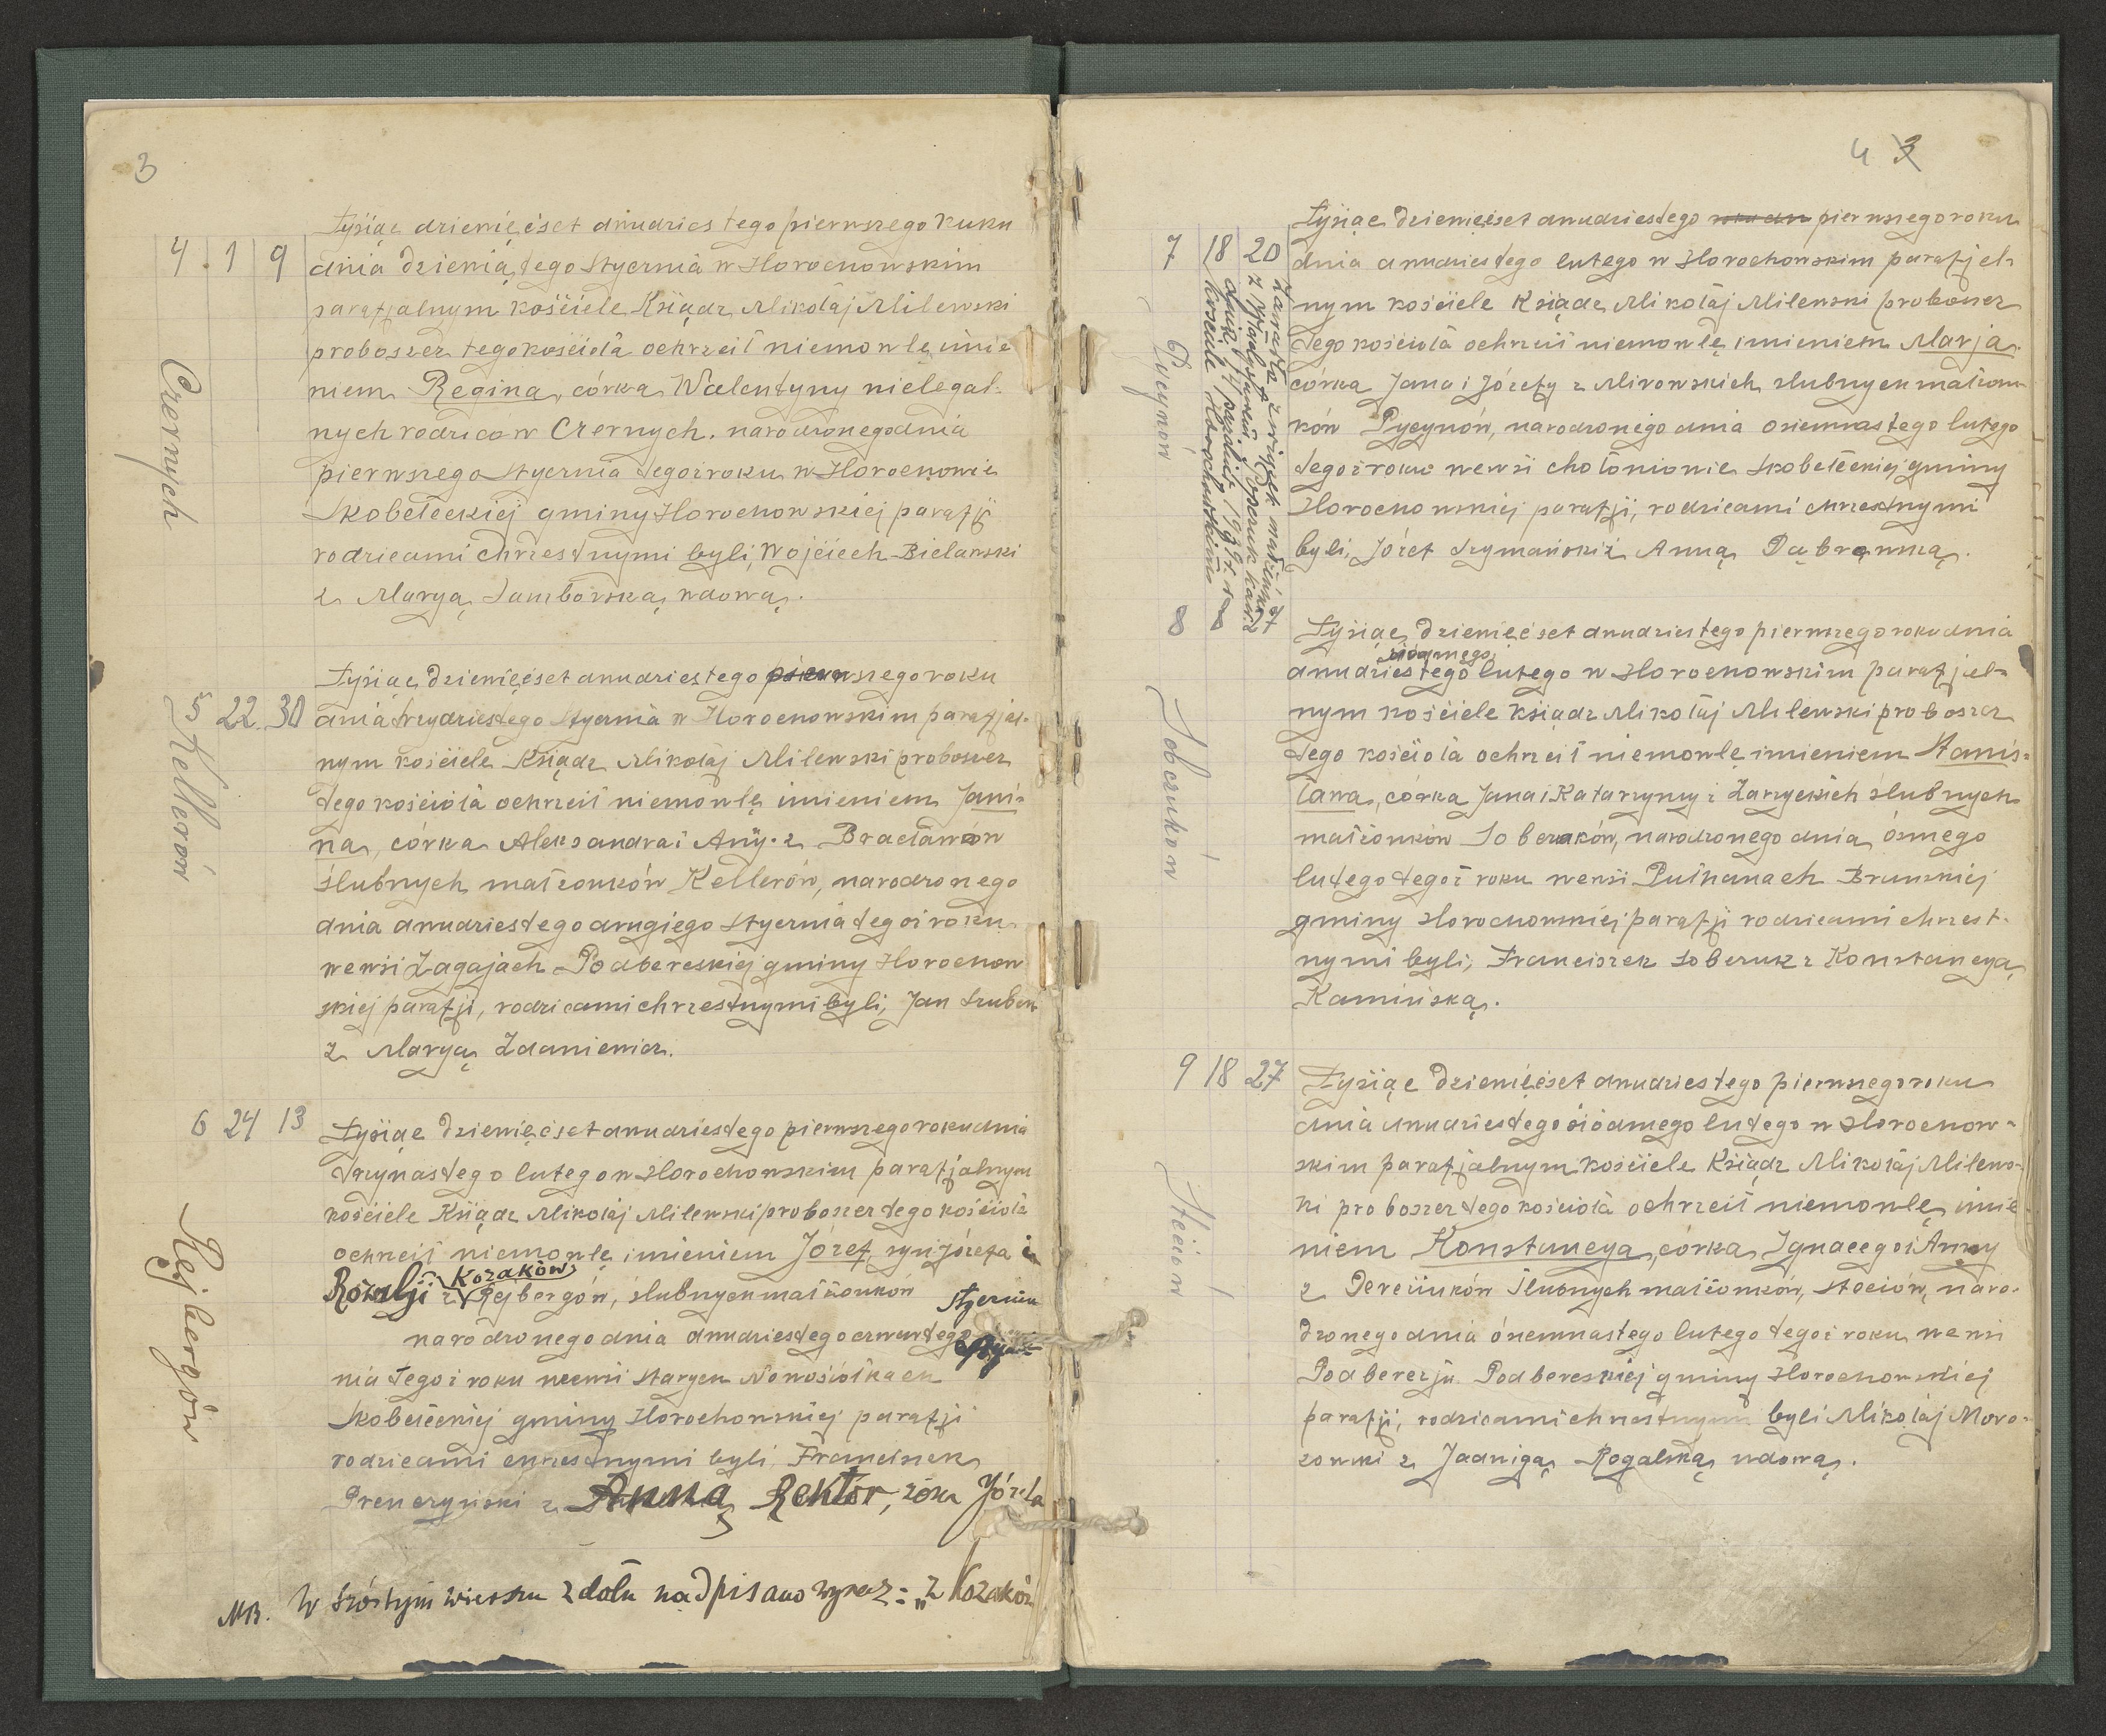 3
Tysiąc dziewięćset dwudziestego pierwszego roku
4. 1 9 dnia dziewiątego stycznia w Horochowskim
parafjalnym kościele Ksiądz Mikołaj Milewski
proboszcz tego kościoła ochrzcił niemowlę imie
niem Regina, córka Walentyny nielegal-
nych rodziców Czernych. narodzonego dnia
pierwszego stycznia tegoż roku w Horochowie
Skobełeckiej gminy Horochowskiej parafji
rodzicami chrzestnymi byli, Wojciech Bielawski
z Maryą Samborską wdową.
Czernych
Tysiąc dziewięćset dwudziestego pierwszego roku
5 22 30 dnia trzydziestego stycznia w Horochowskim parafjel-
nym kościele Ksiądz Mikołaj Milewski proboszcz
tego kościoła ochrzcił niemowlę imieniem Jani-
na, córka Aleksandra i Anny z Bracławów
ślubnych małżonków Kellerów, narodzonego
dnia dwudziestego drugiego stycznia tegoż roku
we wsi Zagajach Podbereskiej gminy Horochow
skiej parafji, rodzicami chrzestnymi byli, Jan
z Maryą Zdaniewicz.
Kellerów
6 24 13 Tysiąc dziewięćset dwudziestego pierwszego roku dnia
trzynastego lutego w Horochowskim parafjalnym
kościele Ksiądz Mikołaj Milewski proboszcz tego kościoła
ochrzcił niemowlę imieniem Józef, syn Józefa i
Kozaków
Rozalji z Rejbergów, ślubnych małżonków stycznia
narodzonego dnia dwudziestego czwartego
nia tegoż roku we wsi Starych Nowosiółkach
Skobełeckiej gminy Horochowskiej parafji
rodzicami chrzestnymi byli, Franciszek
z Anną Rektor, żona Józefa
Rejbergów
NB. W szóstym wierszu z dołu nadpisano wyraz: "z Kozaków
4 3
Tysiąc dziewięćset dwudziestego roku dn pierwszego roku
7 18 20 dnia dwudziestego lutego w Horochowskim parafjel-
nym kościele Ksiądz Mikołaj Milewski proboszcz
tego kościoła ochrzcił niemowlę imieniem Marja.
córka Jana i Józefy z Mirowskich ślubnych małżon-
ków Pycynów, narodzonego dnia osiemnastego lutego
tegoż roku we wsi Chołoniowie Skobełeckiej gminy
Horochowskiej parafji, rodzicami chrzestnymi
byli, Józef Szymański z Anną Dąbrowską.
Pycynów
Zawarła związek małżeński
dnia 17 1939 r. w
kościele Horochowskim
8 Tysiąc dziewięćset dwudziestego pierwszego roku dnia
siódmego
dwudziestego lutego w Horochowskim parafjel-
nym kościele Ksiądz Mikołaj Milewski proboszcz
tego kościoła ochrzcił niemowlę imieniem Stanis-
ława, córka Jana i Katarzyny z Zaryckich ślubnych
małżonków Sobczuków, narodzonego dnia ósmego
lutego tegoż roku we wsi Pulhanach Brunskiej
gminy Horochowskiej parafji rodzicami chrzest-
nymi byli, Franciszek Sobczuk z Konstancyą
Kamińską.
Sobczuków
9 18 27 Tysiąc dziewięćset dwudziestego pierwszego roku
dnia dwudziestego siódmego lutego w Horochow-
skim parafjalnym kościele Ksiądz Mikołaj Milews-
ki proboszcz tego kościoła ochrzcił niemowlę imie
niem Konstancya, córka Ignacego i Anny
z ślubnych małżonków, Steciów, naro-
dzonego dnia ósemnastego lutego tegoż roku we wsi
Podberezju Podbereskiej gminy Horochowskiej
parafji, rodzicami chrzestnymi byli Mikołaj Moro-
zowski z Jadwigą Rogalską wdową.
Steciów